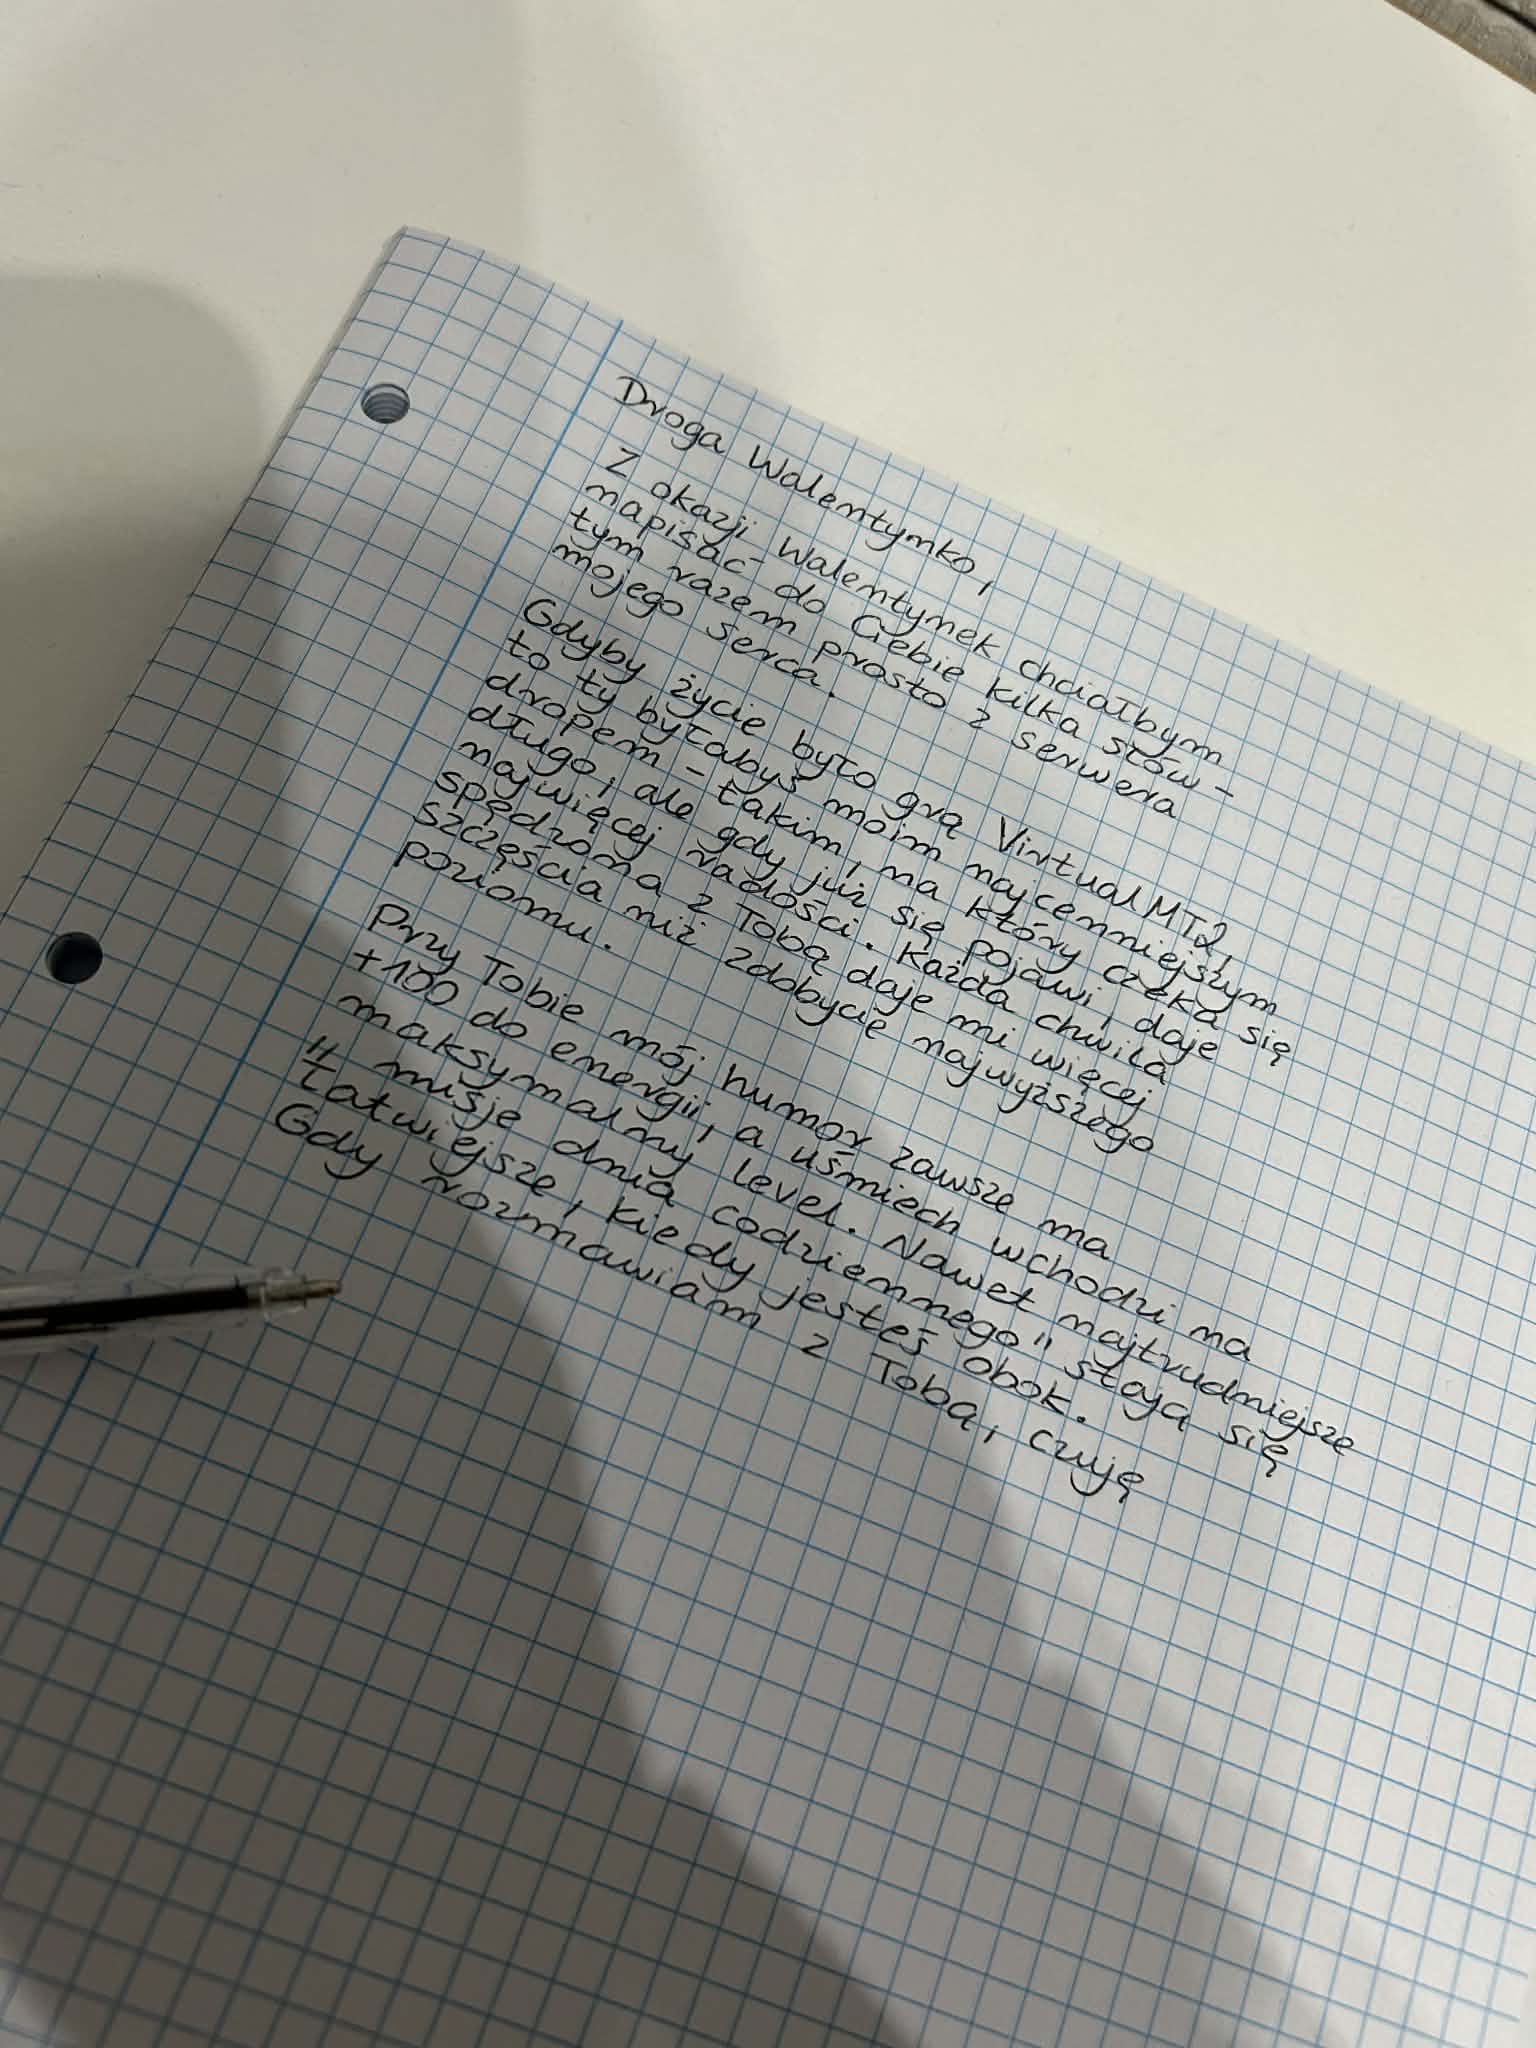 Droga Walentynko,
Z okazji Walentynek chciałbym
napisać do Ciebie kilka słów –
tym razem prosto z serwera
mojego serca.
Gdyby życie było grą VirtualMT2,
to ty byłabyś moim najcenniejszym
dropem – takim, na który czeka się
długo, ale gdy już się pojawi, daje
najwięcej radości. Każda chwila
spędzona z Tobą daje mi więcej
szczęścia niż zdobycie najwyższego
poziomu.
Przy Tobie mój humor zawsze ma
+100 do energii, a uśmiech wchodzi na
maksymalny level. Nawet najtrudniejsze
"misje dnia codziennego" stają się
łatwiejsze, kiedy jesteś obok.
Gdy rozmawiam z Tobą, czuję